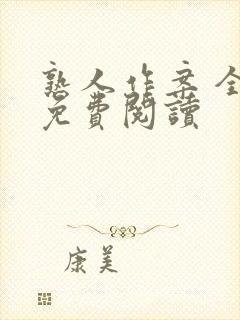 熟人作案全
免費閱讀
康美